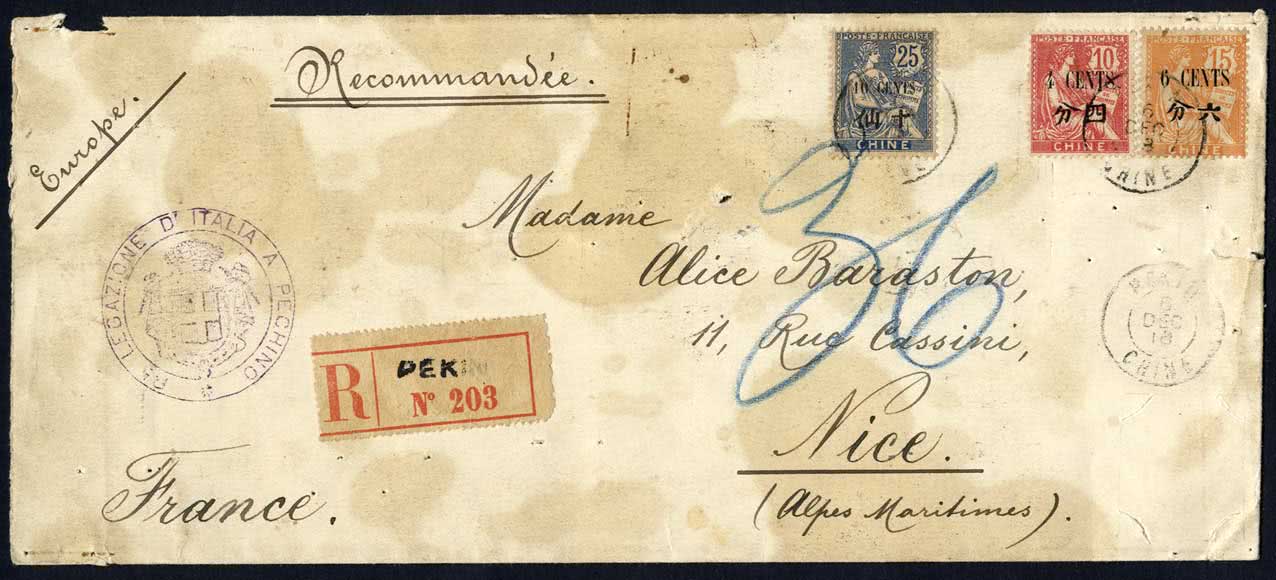 Recommandée.
Europe.
POSTE FRANÇAISE
25
10 CENTS
仙 十
CHINE
POSTE FRANÇAISE
10
4 CENTS.
分 四
CHINE
POSTE FRANÇAISE
15
6 CENTS
分 六
DEC
CHINE
Madame
Alice Baraston,
11, Rue Cassini,
Nice.
(Alpes Maritimes).
36
Rª LEGAZIONE D'ITALIA A PECHINO
R
PEKIN
Nº 203
PEKIN
6
DEC
18
CHINE
France.